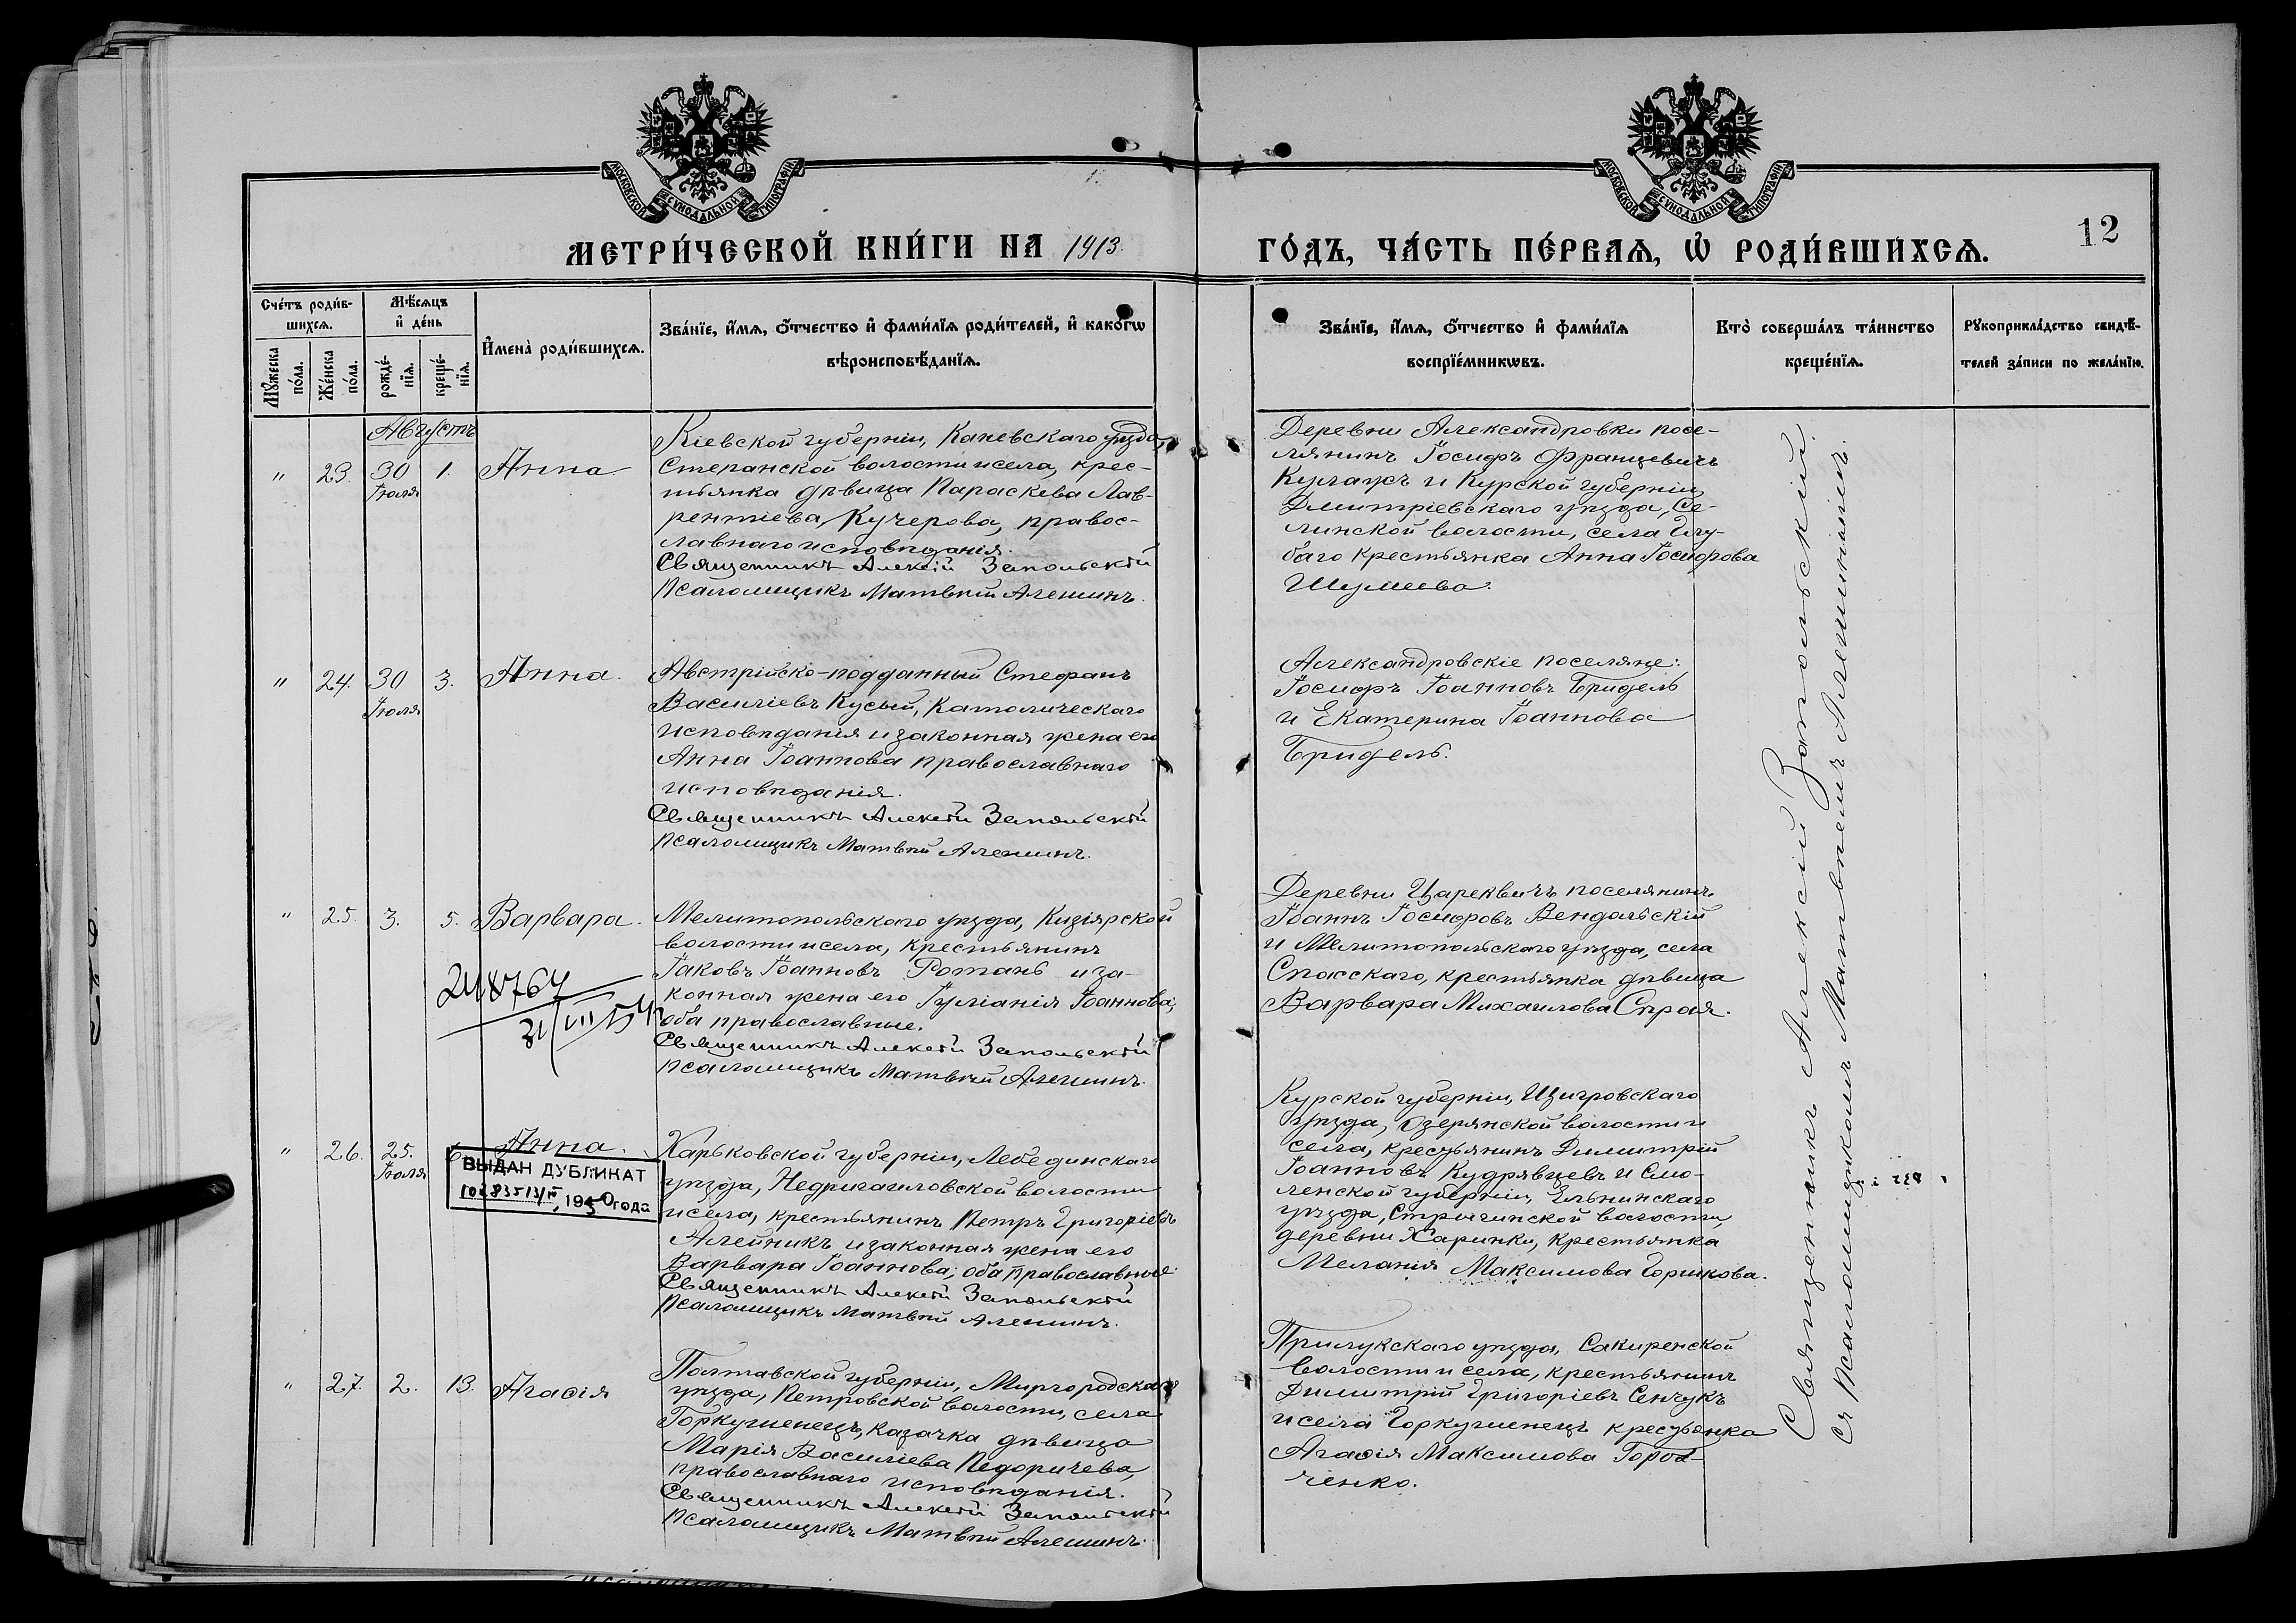 МОСКОВСКОЙ СѴНОДАЛЬНОЙ ТИПОГРАФІИ
МОСКОВСКОЙ СѴНОДАЛЬНОЙ ТИПОГРАФІИ
МЕТРИ́ЧЕСКОЙ КНИ́ГИ НА 1913
ГО́ДЪ, ЧА́СТЬ ПЕ́РВАѦ, Ѡ҆ РОДИ́ВШИХСѦ.
12
Сче́тъ роди́в-
шихсѧ.
Мꙋ́жеска по́ла.
Же́нска по́ла.
Мѣ́сѧцъ
и҆ де́нь
рожде́-
нїѧ.
креще́-
нїѧ.
И҆мена̀ роди́вшихсѧ.
Зва́нїе, и҆́мѧ, ѻ҆́тчество и҆ фами́лїѧ роди́телей, и҆ како́гѡ
вѣроисповѣ́данїѧ.
Зва́нїе, и҆́мѧ, ѻ҆́тчество и҆ фами́лїѧ
воспрїе́мникѡвъ.
Кто̀ соверша́лъ та́инство
креще́нїѧ.
Рꙋкоприкла́дство свидѣ́-
телей за́писи по жела́нїю.
Августъ
" 23. 30 Іюля 1. Анна
Кіевской губерніи, Каневскаго уѣзда,
Степанской волости и села, крес-
тьянка дѣвица Параскева Лав-
рентіева Кучерова, правос-
лавнаго исповѣданія.
Священникъ Алексій Запольскій
Псаломщикъ Матвѣй Алешинъ.
Деревни Александровки посе-
лянинъ Іосифъ Францевичъ
и Курской губерніи,
Дмитріевскаго уѣзда, Се-
линской волости, села
крестьянка Анна Іосифова
Шумеева.
" 24. 30 Іюля 3. Анна.
Австрійско-подданный Стефанъ
Василіевъ Кусый, католическаго
исповѣданія и законная жена его
Анна Іоаннова православнаго
исповѣданія.
Священникъ Алексій Запольскій
Псаломщикъ Матвѣй Алешинъ.
Александровскіе поселяне:
Іосифъ Іоанновъ Бридель
и Екатерина Іоаннова
Бридель.
" 25. 3. 5. Варвара.
Мелитопольскаго уѣзда, Кизіярской
волости и села, крестьянинъ
Іаковъ Іоанновъ Ротань и за-
конная жена его Іуліанія Іоаннова,
оба православные.
Священникъ Алексій Запольскій
Псаломщикъ Матвѣй Алешинъ.
248764
31/VII 54
Деревни Цареквичъ поселянинъ
Іоаннъ Іосифовъ Вендольскій
и Мелитопольскаго уѣзда, села
Спасскаго, крестьянка дѣвица
Варвара Михаилова Сѣрая.
" 26. 25. Іюля 6. Анна.
ВЫДАН ДУБЛИКАТ
, 1950 года
Харьковской губерніи, Лебединскаго
уѣзда, Недригаиловской волости
и села, крестьянинъ Петръ Григоріевъ
Алейникъ и законная жена его
Варвара Іоаннова; оба православные
Священникъ Алексій Запольскій
Псаломщикъ Матвѣй Алешинъ.
Курской губерніи, Щигровскаго
уѣзда, Озерянской волости и
села, крестьянинъ Димитрій
Іоанновъ Кудрявцевъ и Смо-
ленской губерніи, Ельнинскаго
уѣзда, волости,
деревни Харинки, крестьянка
Меланія Максимова Горшкова.
" 27. 2. 13. Агафія
Полтавской губерніи, Миргородскаго
уѣзда, Петровской волости, села
казачка дѣвица
Марія Василіева
православнаго исповѣданія.
Священникъ Алексій Запольскій
Псаломщикъ Матвѣй Алешинъ.
Прилукскаго уѣзда, Сакиренской
волости и села, крестьянинъ
Димитрій Григоріевъ Сенчукъ
и села крестьянка
Агафія Максимова Город-
ченко.
Священникъ Алексій Запольскій
съ псаломщикомъ Матвѣемъ Алешинымъ.